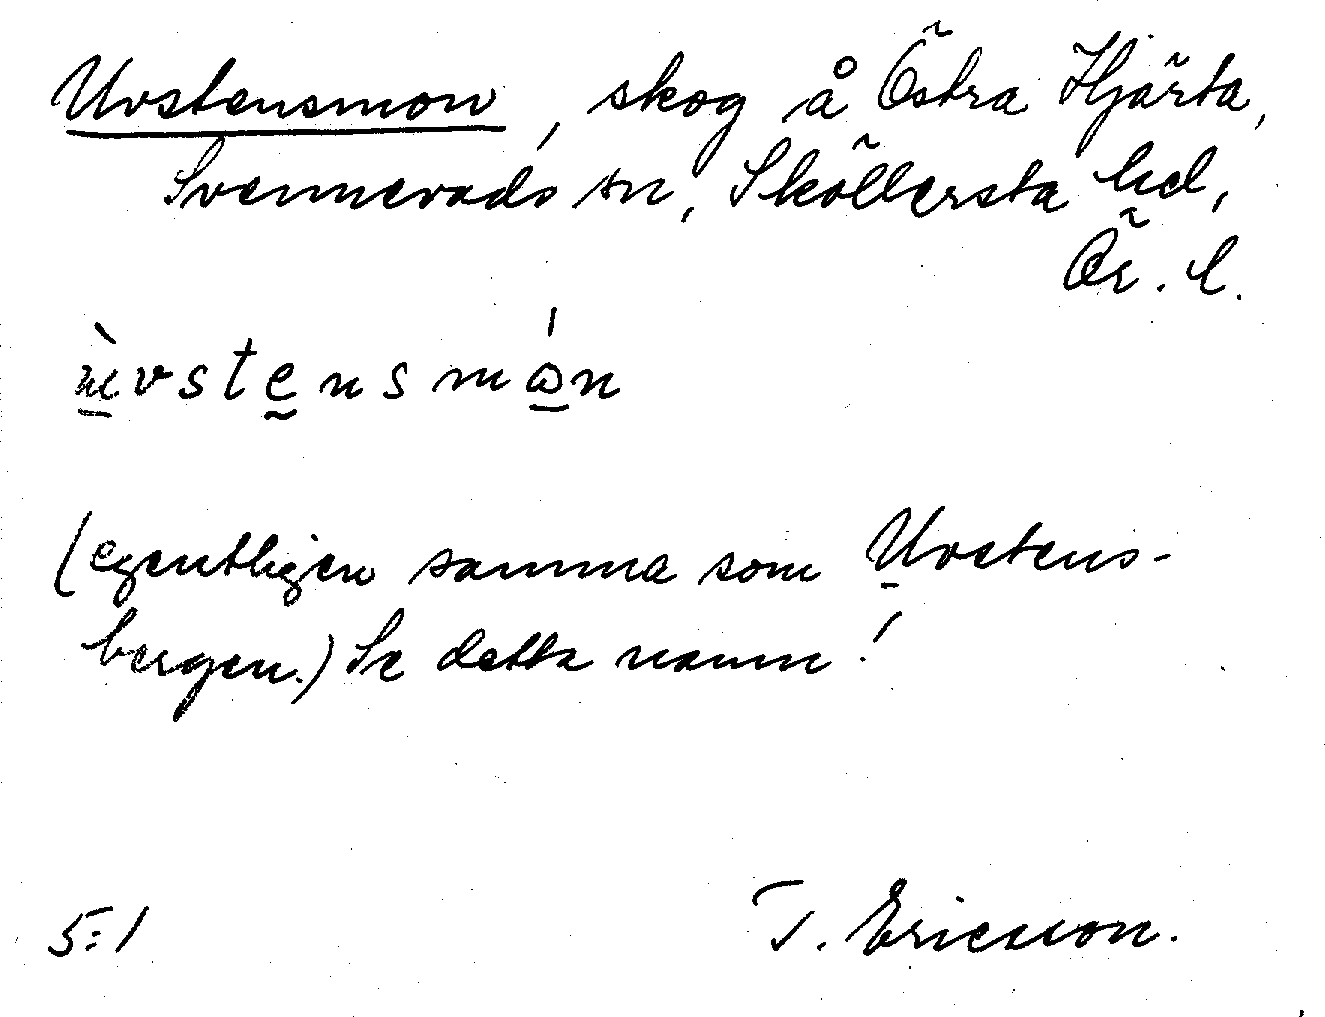 Uvstensmon, skog å Östra Hjärta,
Svennevads sn, Sköllersta hd,
Ör. l.
ùvstensmón
(egentligen samma som Uvstens-
bergen.) Se detta namn!
5:1 T. Ericsson.